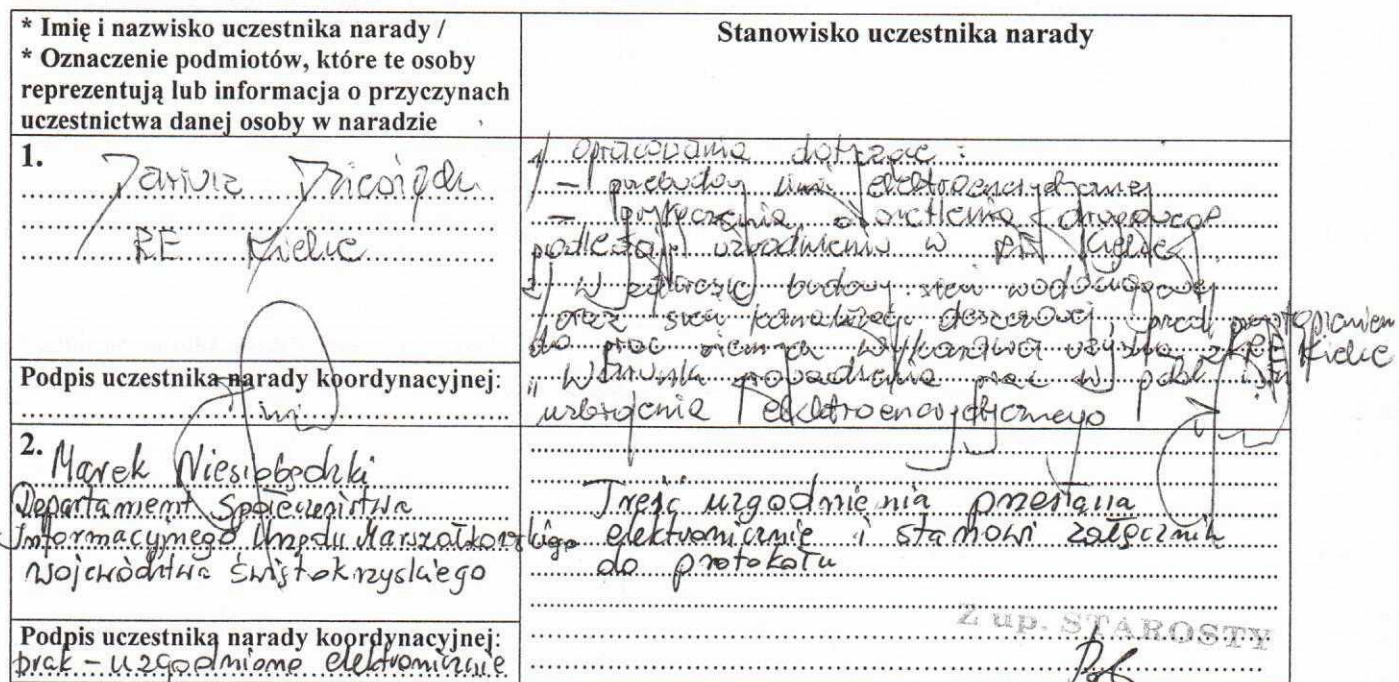 * Imię i nazwisko uczestnika narady /
* Oznaczenie podmiotów, które te osoby
reprezentują lub informacja o przyczynach
uczestnictwa danej osoby w naradzie
Stanowisko uczestnika narady
1.
RE Kielce
1/ Opracowania dotyczące :
- przebudowy linii elektroenergetycznej
- przyłączenia oświetlenia drogowego
podlegają uzgodnieniu w RE Kielce
2/ W zakresie budowy sieci wodociągowej
oraz sieci kanalizacji deszczowej, przed przystąpieniem
do prac ziemnych wykonawca uzyska z RE Kielce
" Warunki prowadzenia prac w pobliżu
uzbrojenia elektroenergetycznego
Podpis uczestnika narady koordynacyjnej:
2. Marek Niesiobędzki
Departament Społeczeństwa
Informacyjnego Urzędu Marszałkowskiego
Województwa Świętokrzyskiego
Treść uzgodnienia przesłana
elektronicznie i stanowi załącznik
do protokołu
Podpis uczestnika narady koordynacyjnej:
brak - uzgodniono elektronicznie
Z up. STAROSTY